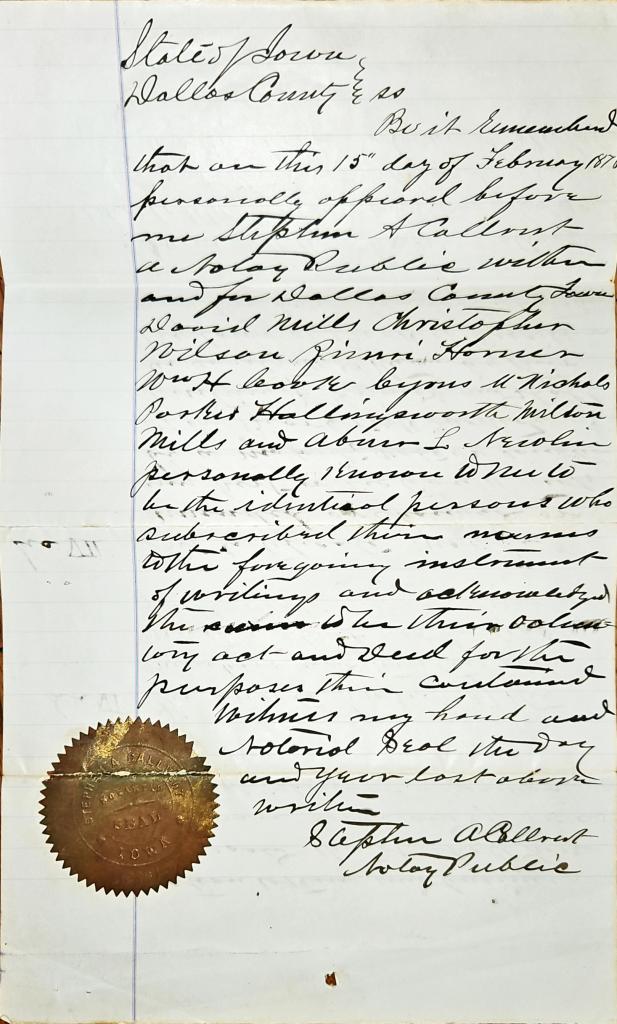 State of Iowa
Dallas County ss
Be it Remembered
that on this 15" day of February 187
personally appeared before
me Stephen A Callvert
a Notay Public within
and for Dallas County Iowa
David Mills Christopher
Wilson Zimri Horner
Wm H Cook Cyrus Nichols
Parker Hallingsworth Milton
Mills and Abner L Newlin
personally known to me to
be the identical persons who
subscribed their names
to the foregoing instrument
of writings and acknowledged
the same to be their volun
tory act and Deed for the
purposes their contained
Witness my hand and
Notorial Seal the day
and year last above
written
Stephen A Callvert
Notay Public
STEPHEN A CALLVERT
SEAL
IOWA